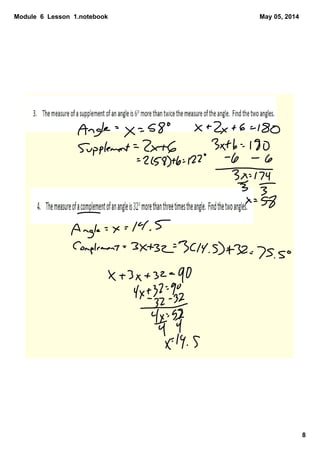 Module 6 Lesson 1.notebook
May 05, 2014
3. The measure of a supplement of an angle is 6⁰ more than twice the measure of the angle. Find the two angles.
Angle = x = 58°
x + 2x + 6 = 180
Supplement = 2x+6
3x+6 = 180
= 2(58)+6 = 122°
-6 -6
3x = 174
3 3
x = 58
4. The measure of a complement of an angle is 32⁰ more than three times the angle. Find the two angles.
Angle = x = 14.5
Complement = 3x+32 = 3(14.5)+32 = 75.5°
x + 3x + 32 = 90
4x + 32 = 90
-32 -32
4x = 58
4 4
x = 14.5
8